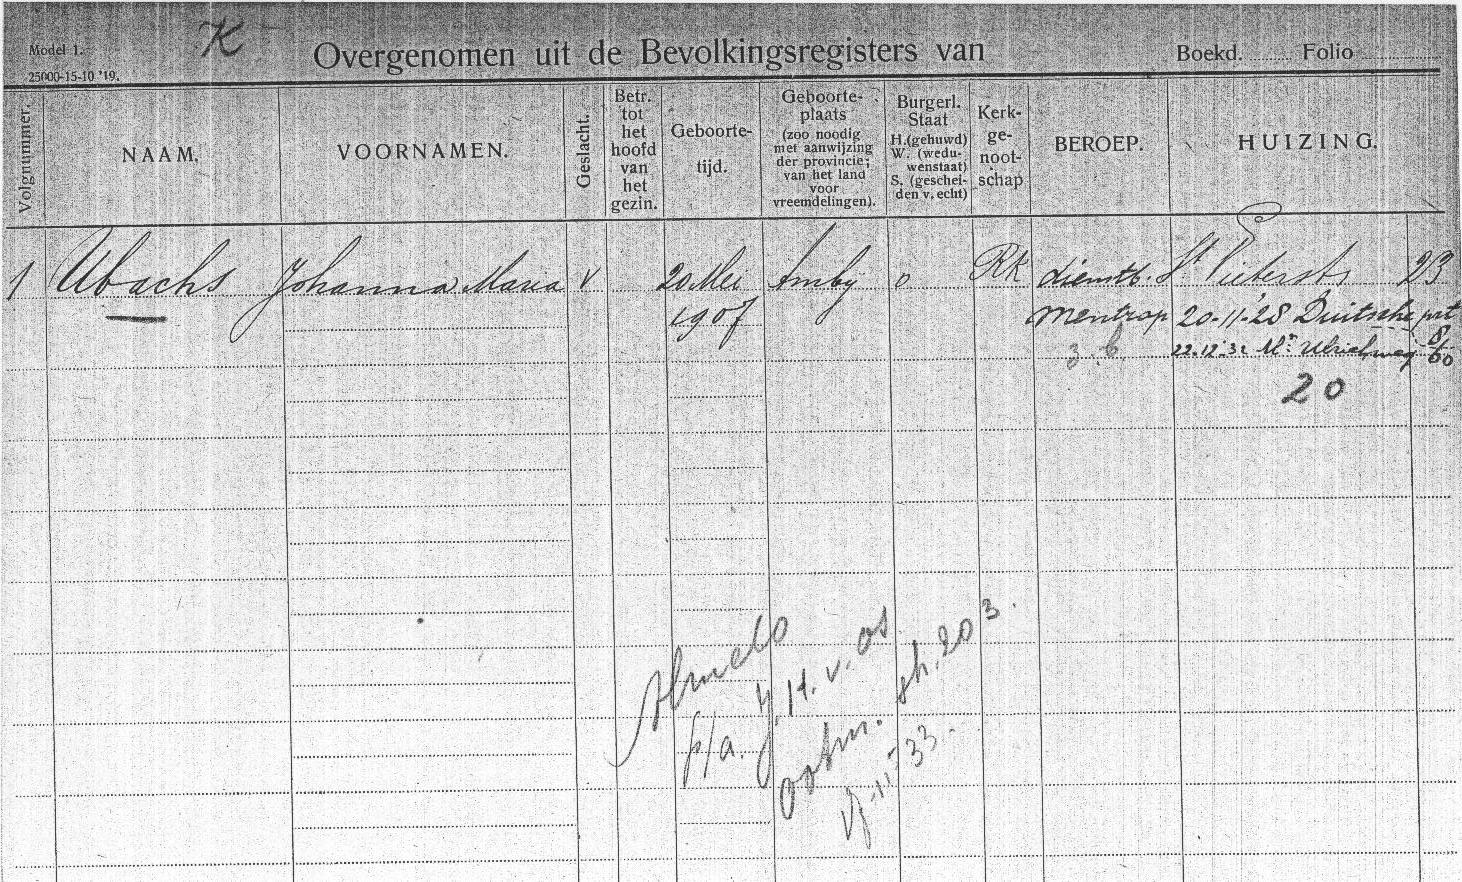 Model 1.
25000-15-10 '19.
K
Overgenomen uit de Bevolkingsregisters van
Boekd. ........ Folio ........
Volgnummer.
NAAM.
VOORNAMEN.
Geslacht.
Betr.
tot
het
hoofd
van
het
gezin.
Geboorte-
tijd.
Geboorte-
plaats
(zoo noodig
met aanwijzing
der provincie;
van het land
voor
vreemdelingen).
Burgerl.
Staat
H.(gehuwd)
W. (wedu-
wenstaat)
S. (geschei-
den v. echt)
Kerk-
ge-
noot-
schap
BEROEP.
HUIZING.
1 Ubachs Johanna Maria V 20 Mei Amby o RK dienstb. St Pieterstr 23
1907 20-11-28 Duitsche prt
z. b. 22.12.32 Mr Ulrichweg 8/60
20
Almelo
p/a. J. H. v. Os
ootm. 20 3.
11-33.